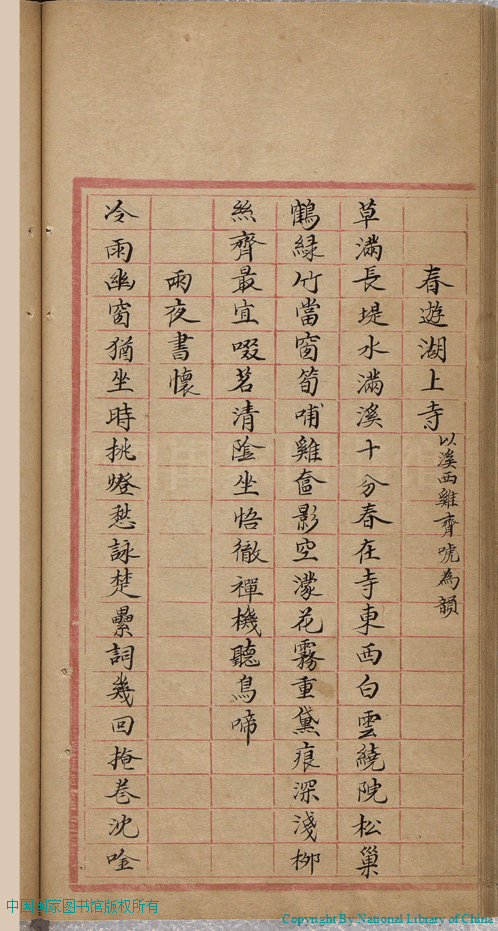 春遊湖上寺
以溪西雞齊唬為韻
草滿長堤水滿溪十分春在寺東西白雲繞院松巢
鶴綠竹當窗筍哺雞奩影空濛花霧重黛痕深淺柳
絲齊最宜啜茗清陰坐悟徹禪機聽鳥啼
雨夜書懷
冷雨幽窗猶坐時挑燈愁詠楚纍詞幾回掩卷沈唫
中国国家图书馆版权所有
Copyright By National Library of China